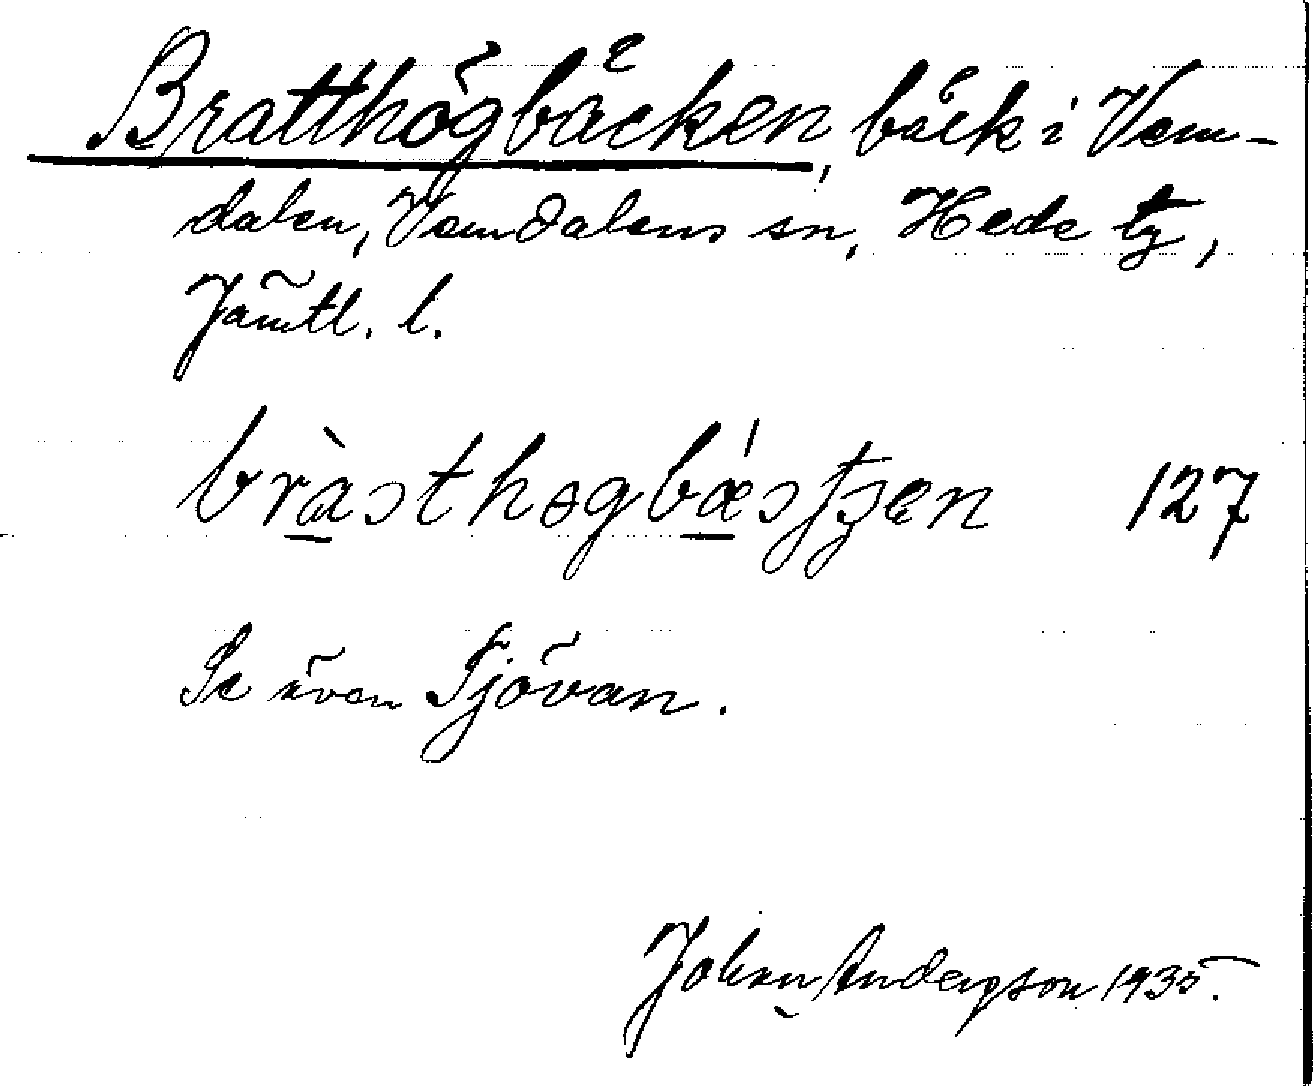 Bratthögbäcken, bäck i Vem-
dalen, Vemdalens sn, Hede tg,
Jämtl. l.
127
Se även Tjövan.
Johan Anderson 1935.